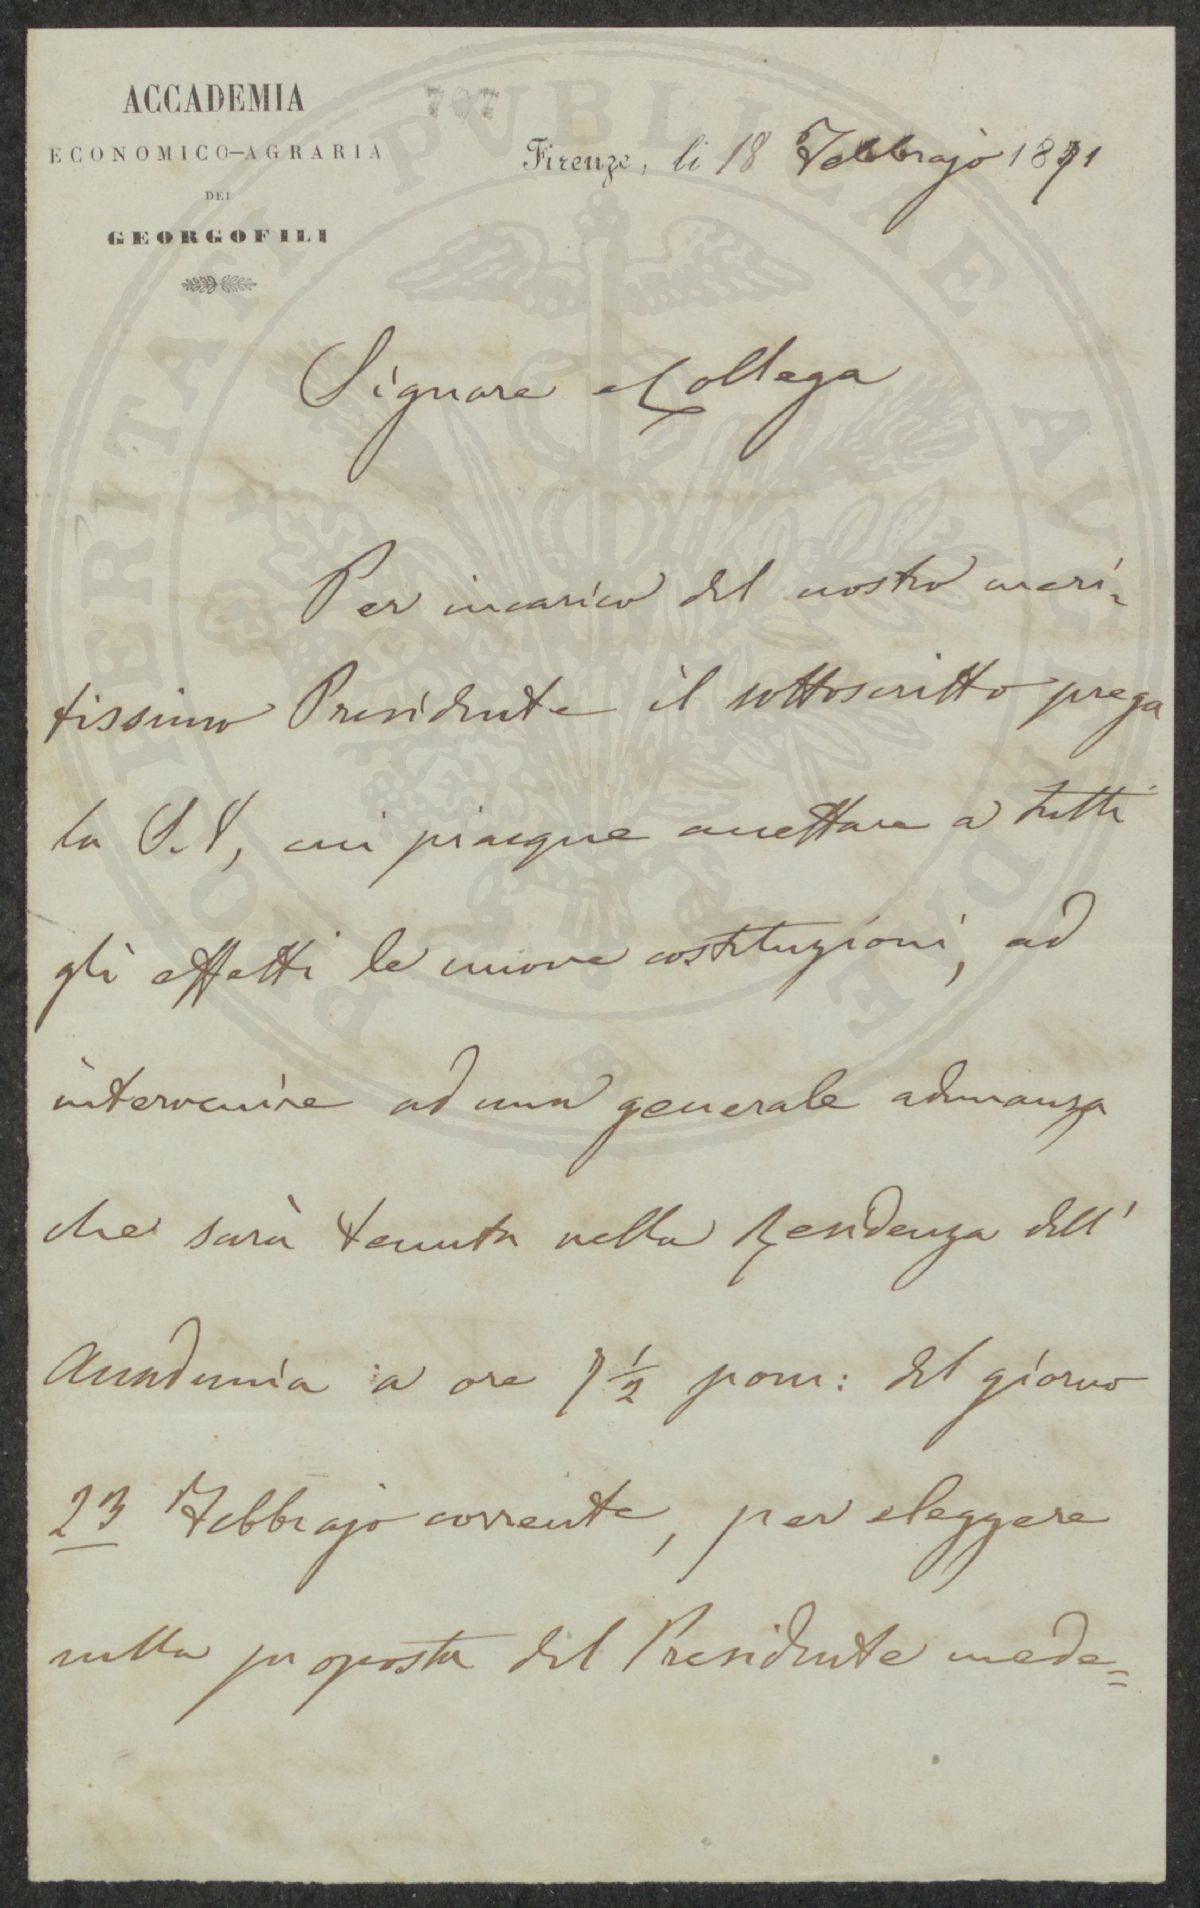 ACCADEMIA
ECONOMICO-AGRARIA
DEI
GEORGOFILI
707
Firenze, li 18 Febbrajo 1871
Signore e Collega
Per incarico del nostro meri-
tissimo Presidente il sottoscritto prega
la S.V, cui piacque accettare a tutti
gli effetti le nuove costituzioni, ad
intervenire ad una generale adunanza
che sarà tenuta nella Residenza dell'
Accademia a ore 7 1/2 pom: del giorno
23 Febbrajo corrente, per eleggere
sulla proposta del Presidente mede=
PROSPERITATI PUBLICAE AUGENDAE